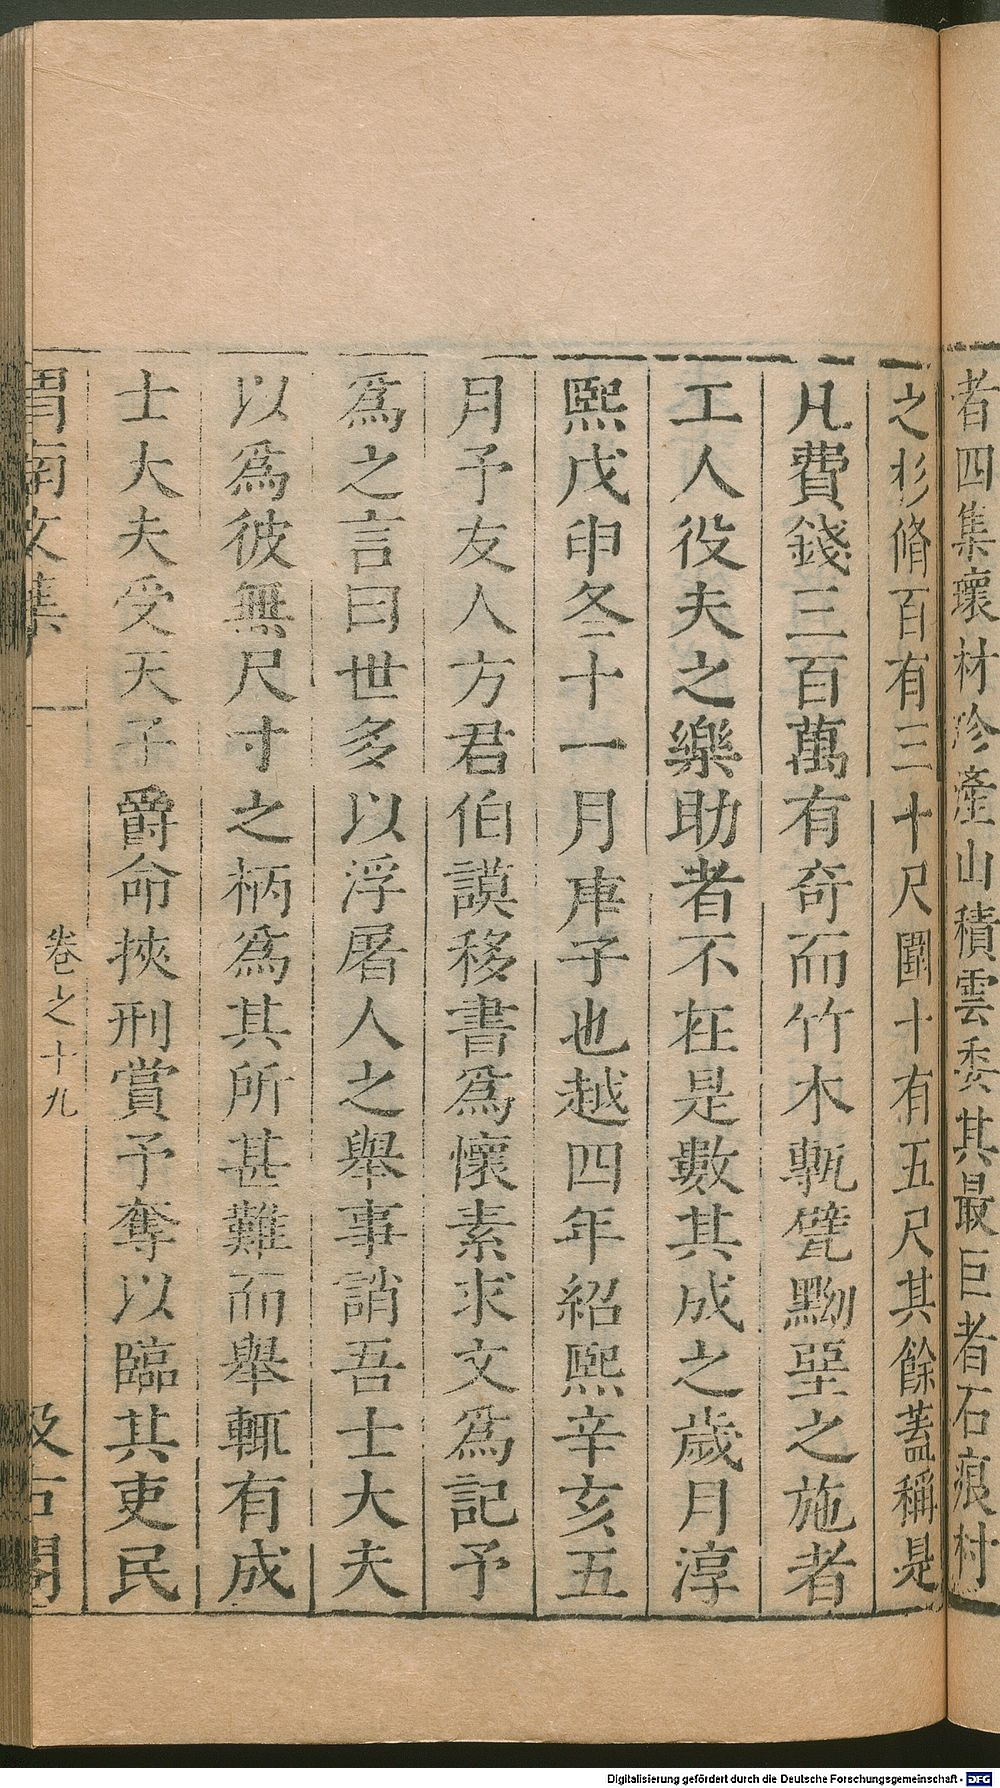 者四集壞材珍產山積雲委其最巨者石痕村
之杉脩百有三十尺圍十有五尺其餘蓋稱是
凡費錢三百萬有奇而竹木甎甓黝堊之施者
工人役夫之樂助者不在是數其成之歲月淳
熙戊申冬十一月庚子也越四年紹熙辛亥五
月予友人方君伯謨移書爲懷素求文爲記予
爲之言曰世多以浮屠人之舉事誚吾士大夫
以爲彼無尺寸之柄爲其所甚難而舉輒有成
士大夫受天子爵命挾刑賞予奪以臨其吏民
渭南文集 卷之十九 汲古閣
Digitalisierung gefördert durch die Deutsche Forschungsgemeinschaft - DFG